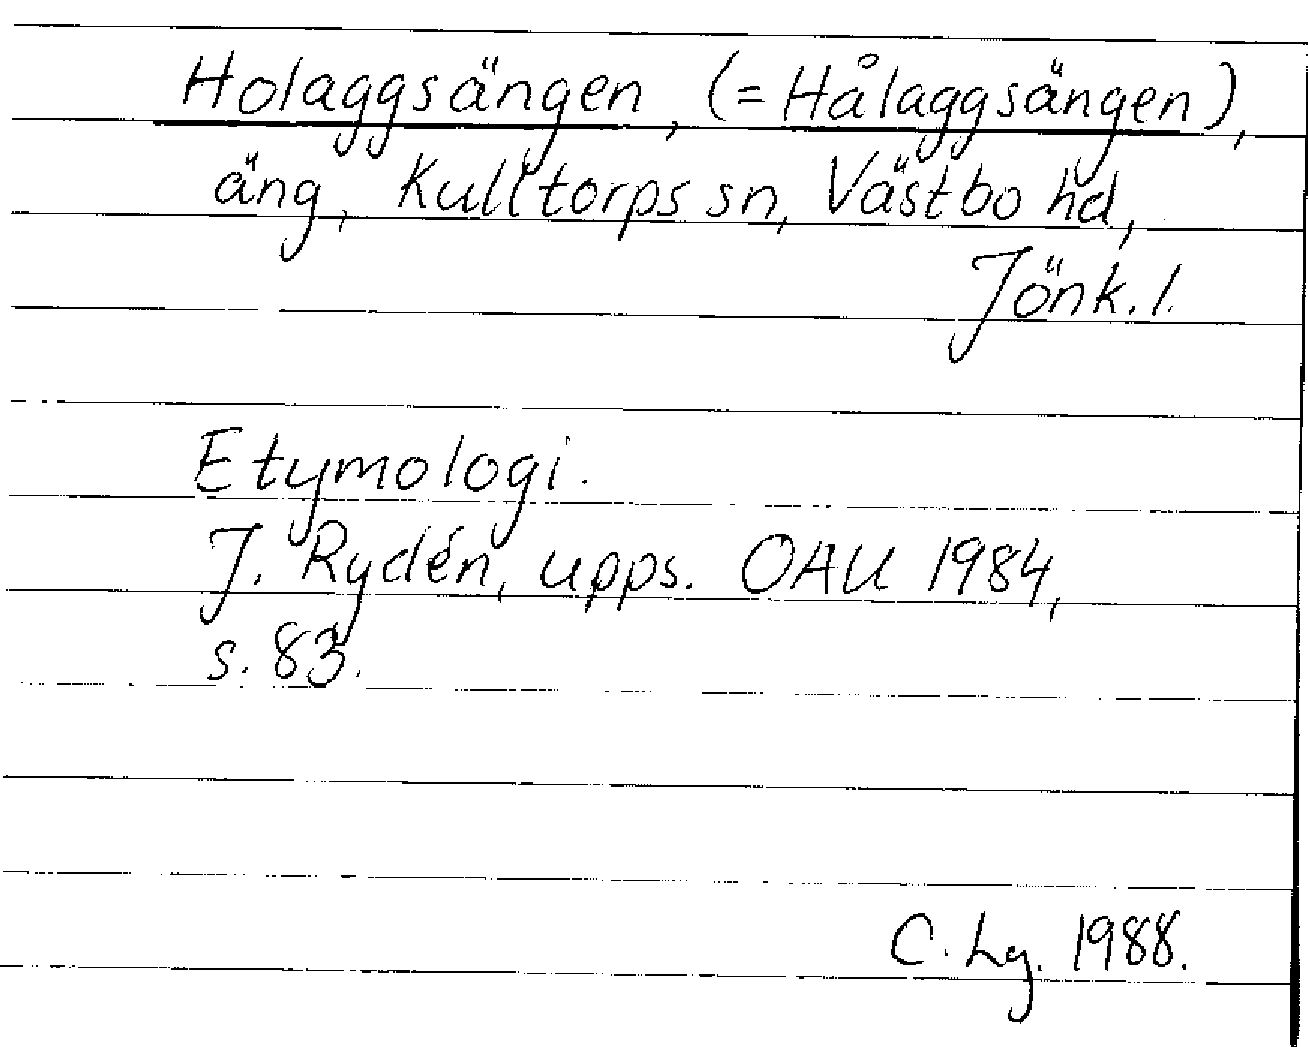 Holaggsängen, (= Hålaggsängen),
äng, Kulltorps sn, Västbo hd,
Jönk. l.
Etymologi.
J. Rydén, upps. OAU 1984,
s. 83.
C. Lg. 1988.